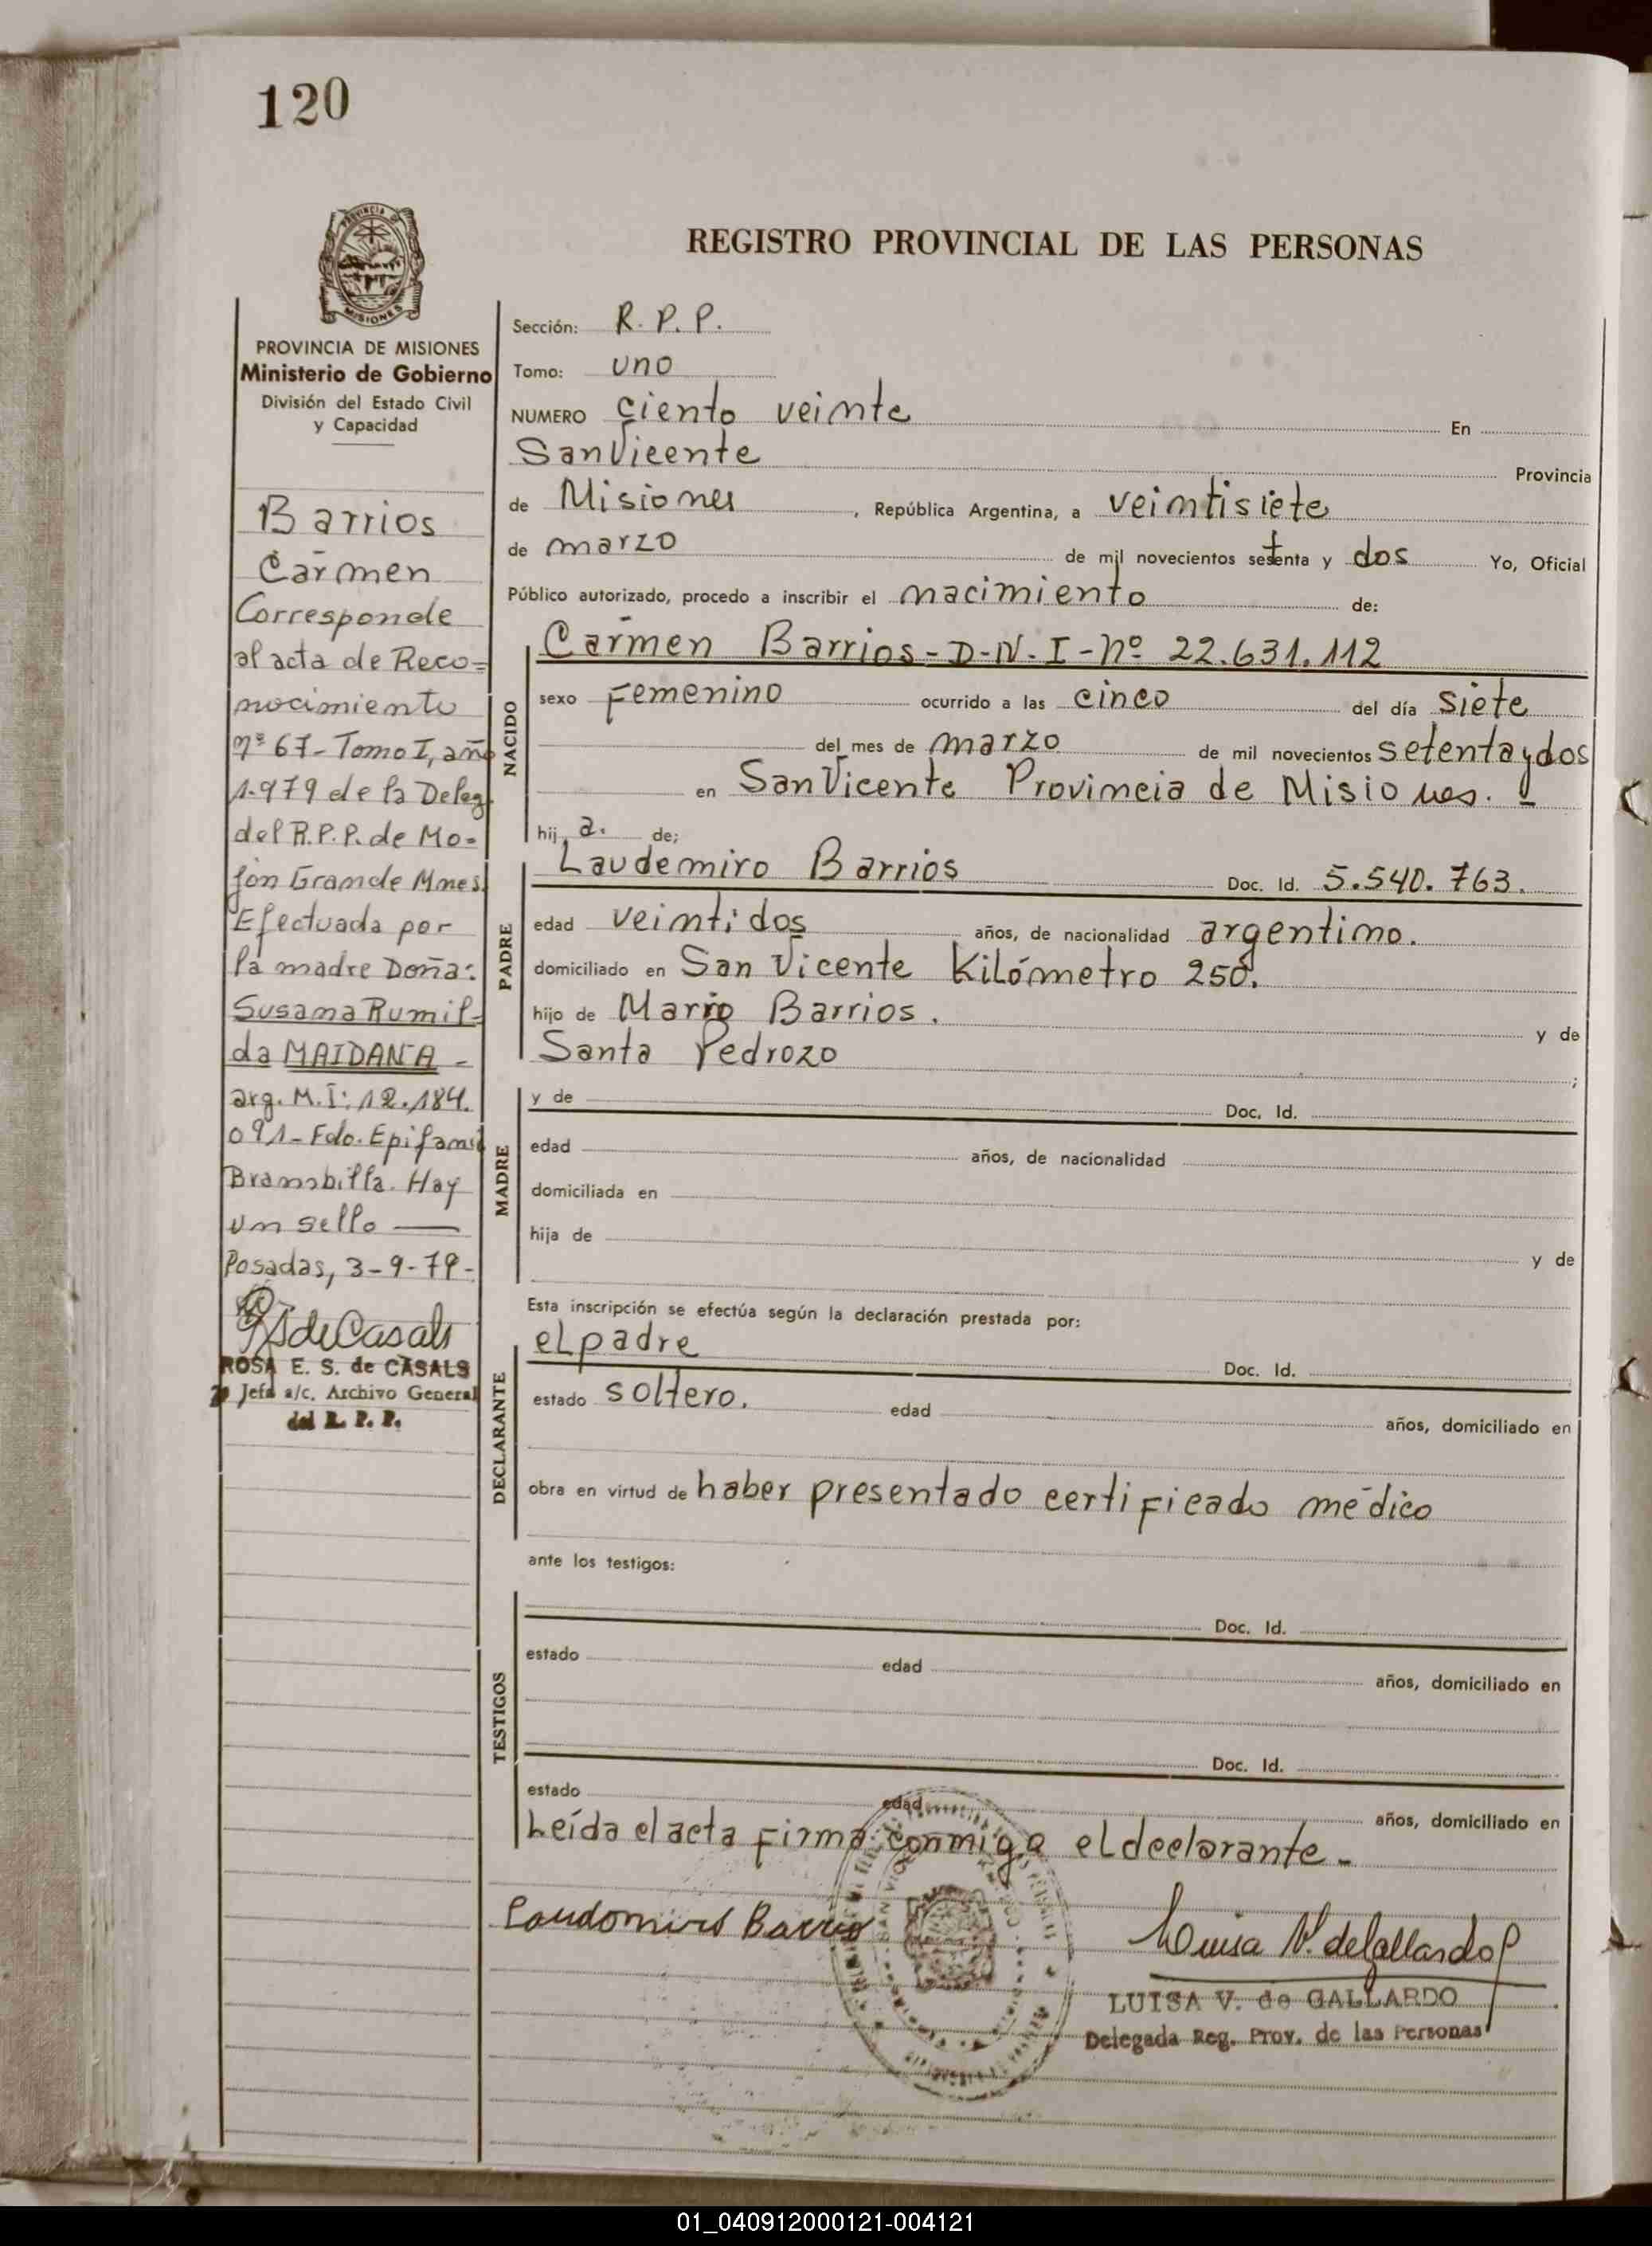 120
PROVINCIA DE
MISIONES
PROVINCIA DE MISIONES
Ministerio de Gobierno
División del Estado Civil
y Capacidad
Barrios
Carmen
Corresponde
al acta de Reco=
nocimiento
nº 67 - Tomo I, año
1.979 de la Deleg.
del R.P.P. de Mo=
jón Grande Mnes.
Efectuada por
la madre Doña:
Susana Rumil=
da MAIDANA -
arg. M.I: 12.184.
091 - Fdo. Epifanio
Brambilla. Hay
un sello —
Posadas, 3-9-79-
ROSA E. S. de CASALS
Jefa a/c. Archivo General
del R. P. P.
REGISTRO PROVINCIAL DE LAS PERSONAS
Sección: R. P. P.
Tomo: uno
NUMERO ciento veinte En
San Vicente Provincia
de Misiones, República Argentina, a veintisiete
de marzo de mil novecientos setenta y dos Yo, Oficial
Público autorizado, procedo a inscribir el nacimiento de:
NACIDO
Carmen Barrios - D-N-I-nº 22.631.112
sexo Femenino ocurrido a las cinco del día siete
del mes de marzo de mil novecientos setenta y dos
en San Vicente Provincia de Misiones. -
hij a. de;
PADRE
Laudemiro Barrios Doc. Id. 5.540.763.
edad veintidos años, de nacionalidad argentino.
domiciliado en San Vicente Kilómetro 250.
hijo de Mario Barrios. y de
Santa Pedrozo ;
MADRE
y de Doc. Id.
edad años, de nacionalidad
domiciliada en
hija de y de
Esta inscripción se efectúa según la declaración prestada por:
DECLARANTE
el padre Doc. Id.
estado soltero. edad años, domiciliado en
obra en virtud de haber presentado certificado médico
ante los testigos:
TESTIGOS
Doc. Id.
estado edad años, domiciliado en
Doc. Id.
estado edad años, domiciliado en
Leída el acta firma conmigo el declarante. -
Laudomiro Barrios
Luisa V. de Gallardo
LUISA V. de GALLARDO
Delegada Reg. Prov. de las Personas
01_040912000121-004121